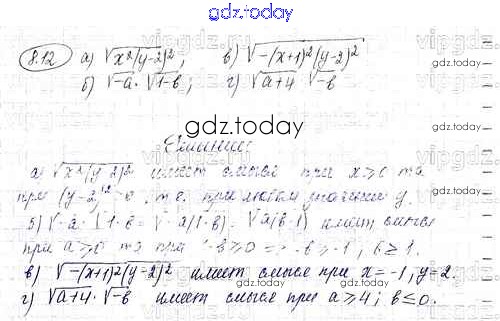 gdz.today
8.12 а) √x²(y-2)²; в) √-(x+1)²(y-2)²
б) √-a · √1-b; г) √a+4 √-b
gdz.today
Решение:
а) √x²(y-2)² имеет смысл при x≥0 та
при (y-2)²≥0, т.е. при любом значении y.
б) √-a · √1-b = √-a(1-b) = √a(b-1) имеет смысл
при a≥0 та при -b≥0 => -b≥-1, b≥1.
в) √-(x+1)²(y-2)² имеет смысл при x=-1, y=2.
г) √a+4 · √-b имеет смысл при a≥4; b≤0.
gdz.today